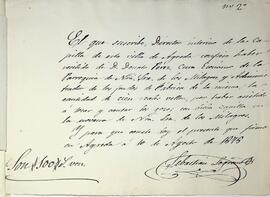 nº 2º
El que suscribe, Director interino de la Ca-
pilla de esta villa de Agreda confieso haber
recibido de D. Donato Perez Cura Economo de la
Parroquia de Ntra. Sra. de los Milagros y Adminis-
trador de los fondos de Fábrica de la misma, la
cantidad de cien reales vellon, por haber asistido
a tocar y cantar de
novena de Ntra. Sra. de los Milagros.
Y para que conste doy el presente que firmo
en Agreda a 10 de Agosto de 1878
Son # 100 rs. von.
Sebastian